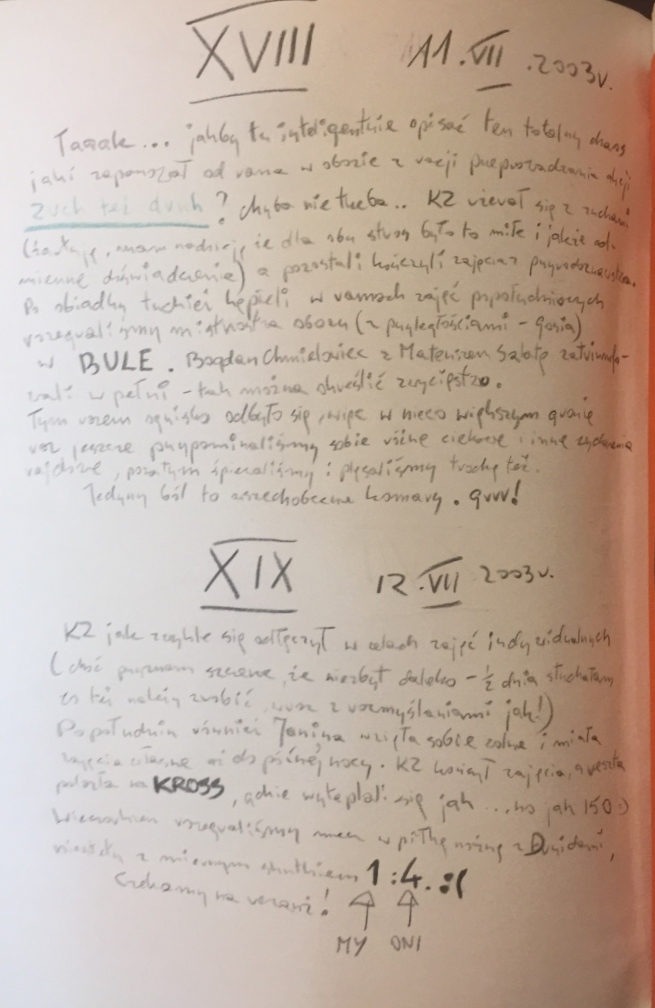 XVIII 11.VII.2003r.
Taaak... jakby tu inteligentnie opisać ten totalny chaos
jaki zapanował od rana w obozie z racji przeprowadzania akcji
Zuch też druh? Chyba nie trzeba.. KZ
się z zuchami
(żartuję, mam nadzieję że dla obu stron było to miłe i jakże od-
mienne doświadczenie) a pozostali kończyli zajęcia z
Po obiadku w ramach zajęć popołudniowych
rozegraliśmy mistrzostwa obozu (z przyległościami - Gosia)
w BULE. Bogdan Chmielowiec z Mateuszem
w pełni - tak można określić zwycięstwo.
Tym razem ognisko odbyło się, więc w nieco większym gronie
raz jeszcze przypominaliśmy sobie różne ciekawe i inne zdarzenia
rajdowe, poza tym śpiewaliśmy i pląsaliśmy trochę też.
Jedyny ból to wszechobecne komary. Grrr!
XIX 12.VII 2003r.
KZ jak zwykle się odłączył w celach zajęć indywidualnych
(choć przyznam szczerze, że niezbyt daleko - ½ dnia słuchałam
co też należy zrobić, wraz z rozmyślaniami jak!)
Po południu również Janina wzięła sobie wolne i miała
zajęcia własne aż do późnej nocy. KZ kończył zajęcia, a reszta
poszła na KROSS, gdzie się jak ... no jak 150:)
Wieczorem rozegraliśmy mecz w piłkę nożną z Druidami,
niestety z miernym skutkiem 1:4. :(
Czekamy na rewanż!
MY ONI